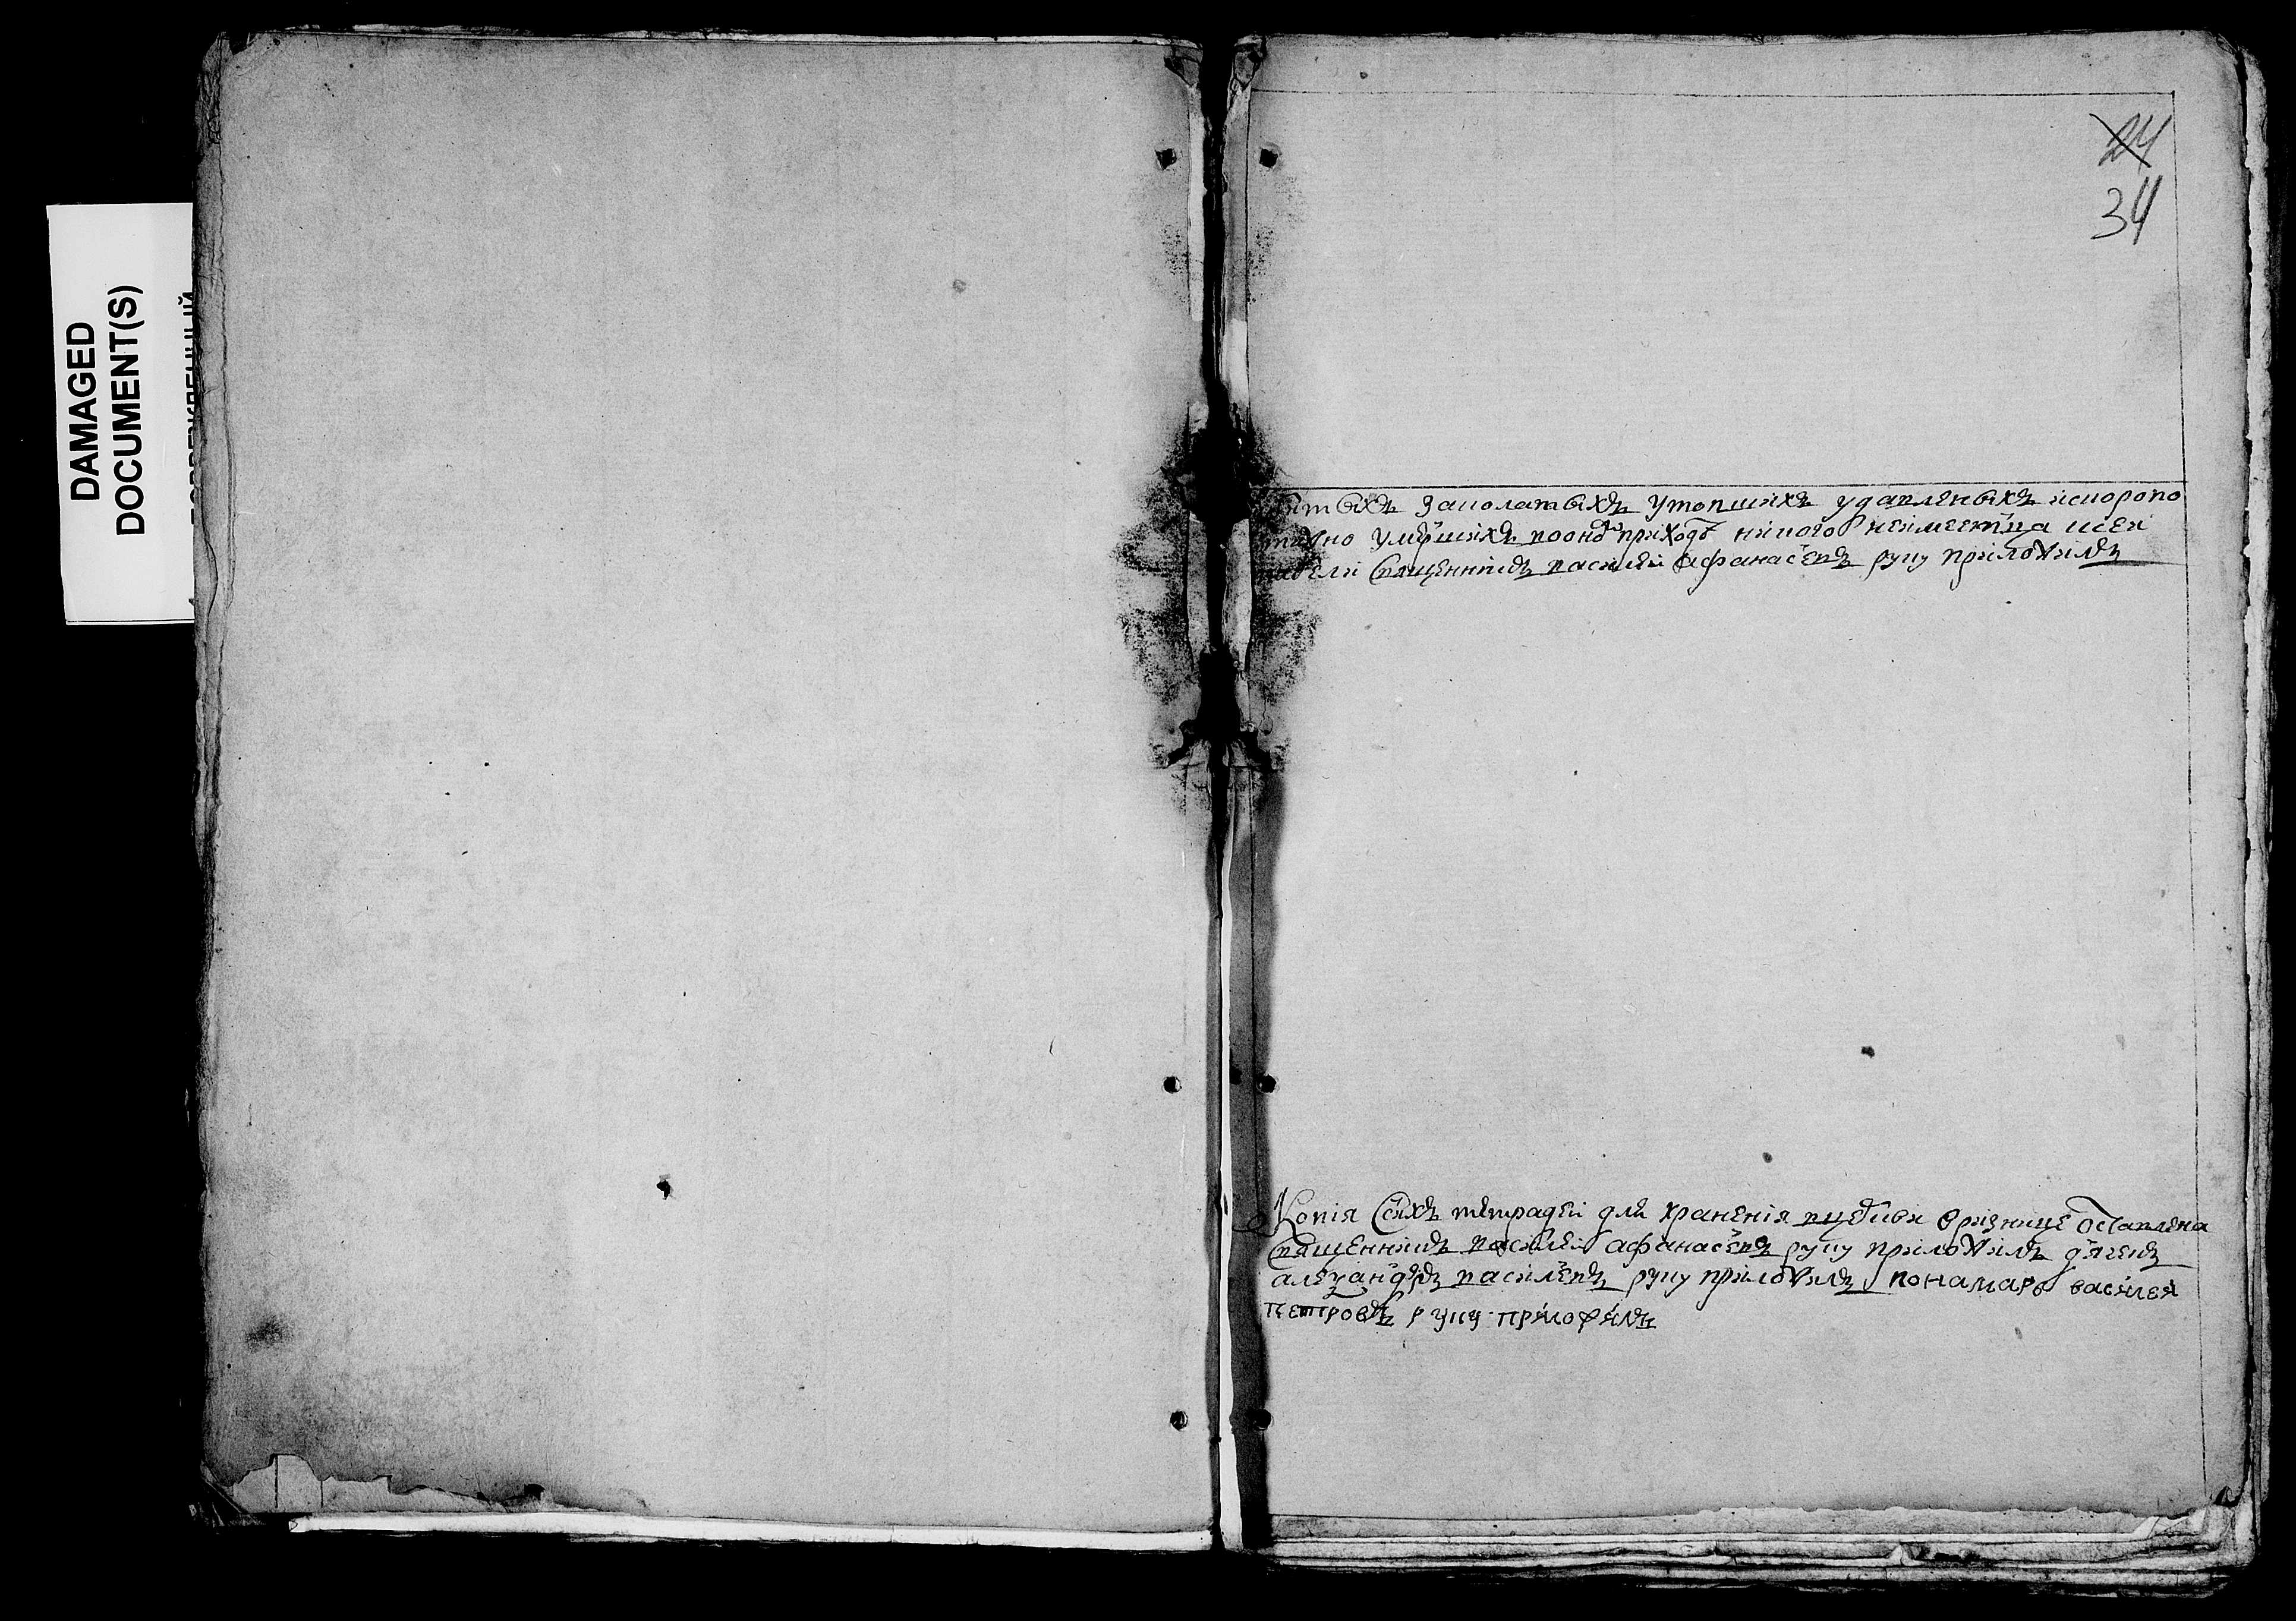 DAMAGED
DOCUMENT(S)
24
34
битыхъ заколатыхъ утопшихъ удавленыхъ искоропо
стижно умершихъ воонōм приходѣ никого неимеетца ксеи
табели Священникъ василеи афанасевъ руку приложилъ
Копия Сихъ тетрадеи для хранения вцеркви вризнице оставлена
Священникъ василеи афанасевъ руку приложилъ дьячекъ
алеѯандръ василевъ руку приложилъ понамарь василеи
петровъ руку приложилъ